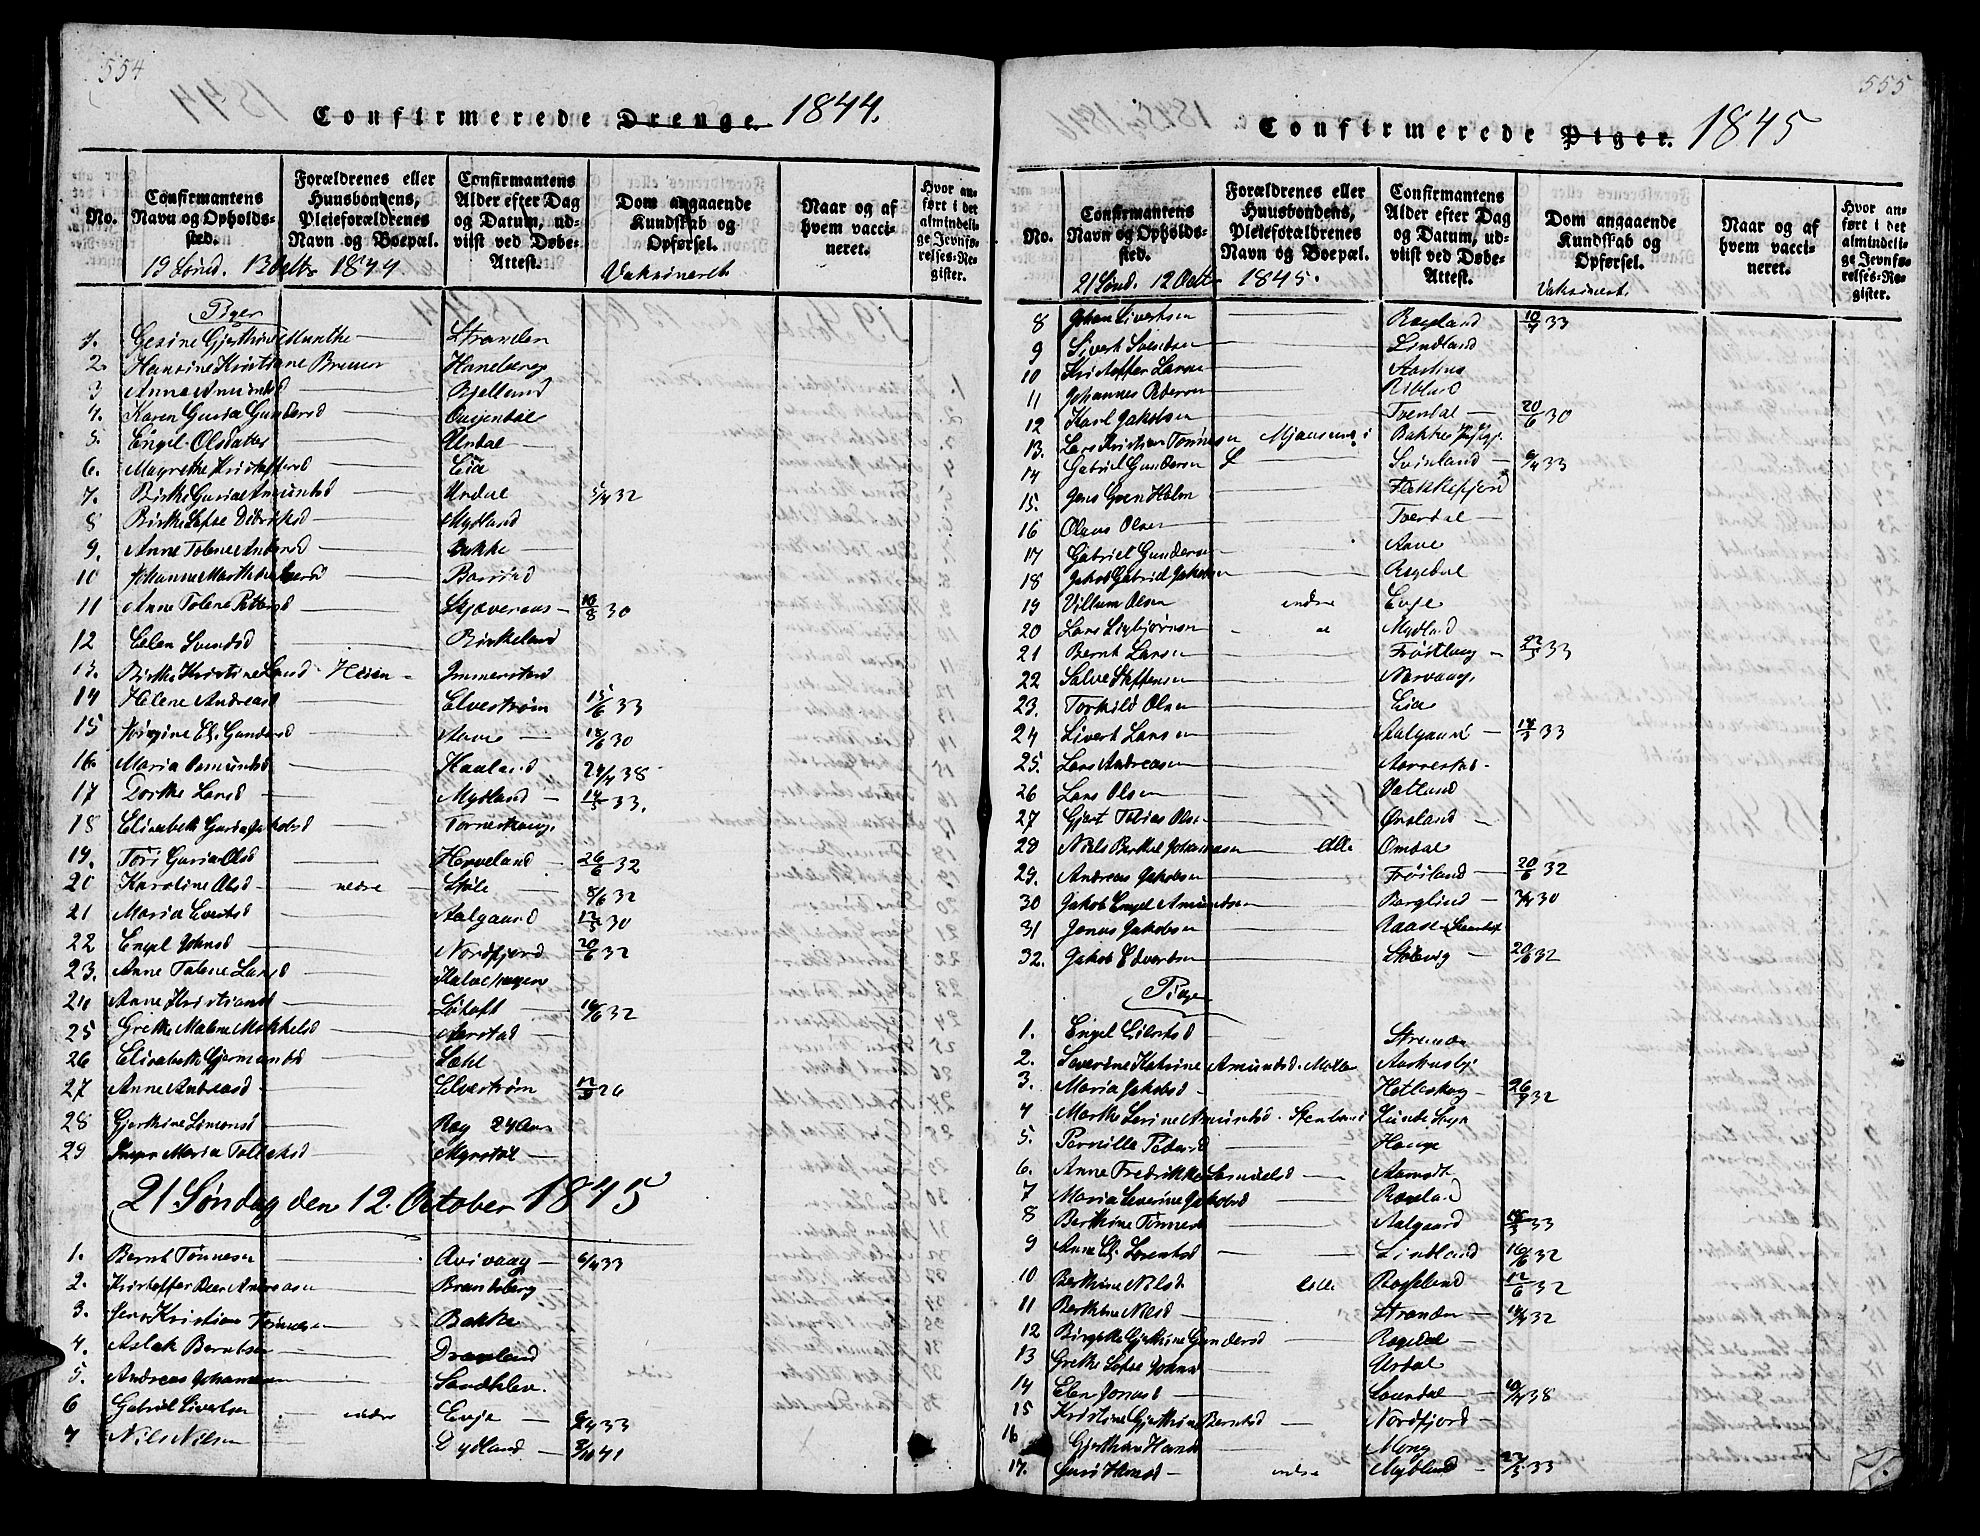 554
Confirmerede Drenge. 1844.
No.
Confirmantens Navn og Opholds-sted.
Forældrenes eller Huusbondens, Pleieforældrenes Navn og Boepæl.
Confirmantens Alder efter Dag og Datum, ud-viist ved Døbe-Attest.
Dom angaaende Kundskab og Opførsel.
Naar og af hvem vacci-neret.
Hvor an-ført i det almindeli-ge Jevnfø-relses-Re-gister.
19 Sønd. 13 Octbr 1844 Vaksineret
Piger
1. Gesine Gjerthine Munthe Stranden
2. Hansine Kristiane Breuer Haneberg
3 Anne Amunsd Bjelland
4. Karen Guria Gundersd
5. Engel Olsdatter Urdal
6. Magrethe Kristoffersd Eia
7. Birthe Guria Amundsd Urdal 5/4 32
8 Birthe Sofie Didriksd Mydland
9. Anne Tolene Bakke
10 Johanne Marthe Barstad
11 Anne Tolene Pettersd 30
12 Eelen Svendsd Birkeland
13. Birthe Kristine Land Heien Immerstein
14 Helene Andreasd Elvestrøm 15/6 33
15 Jørgine El. Gundersd Aave 18/6 30
16 Maria Osmundsd Haaland 38
17 Dorthe Larsd Mydland 14/5 33.
18 Elisabeth Guria Jakobsd
19. Tori Guria Olsd Herveland 26/6 32
20 Karoline Olsd nedre Skile 8/6 32
21 Maria Evertsd Aalgaard 12/5 30
22 Engel Johnsd Nordfjord 20/6 32
23. Anne Tolene Larsd
24 Anne Kristiansd 16/6 32
25 Grethe Malene Mikkelsd Aarstad
26 Elisabeth Gjermundsd
27 Anne Andreasd Elvestrøm 26
28 Gjerthine Simonsd Rag 24 Aar
29 Inger Maria Tollaksd Myrstøl
21 Søndag den 12. October 1845
1. Bernt Tønnesen Avivaag 6/4 33
2. Kristoffer Beer Andreasen Brandsberg
3. Jens Kristian Tønnesen Bakke
4. Aslak Berntsen Drageland
5. Andreas Johannesen Sandklev.
6 Gabriel Sivertsen nedre Evje 33
7 Nils Nilsen Dydland 41
555
Confirmerede Piger. 1845
No.
Confirmantens Navn og Opholds-sted.
Forældrenes eller Huusbondens, Pleieforældrenes Navn og Boepæl.
Confirmantens Alder efter Dag og Datum, ud-viist ved Døbe-Attest.
Dom angaaende Kundskab og Opførsel.
Naar og af hvem vacci-neret.
Hvor an-ført i det almindeli-ge Jevnfø-relses-Re-gister.
21 Sønd. 12 Octbr 1845. Vaksineret.
8 Johan Sivertsen Rageland 33
9 Sivert Svendsen Lindland
10 Kristoffer Larsen
11 Johannes Pedersen Ribland
12 Karl Jakobsen Tverdal 20/6 30
13. Lars Kristian Tønnesen Bakke
14 Gabriel Gundersen Svinland 6/4 33
15. Jens Holm Flekkefjord
16 Olaus Olsen Tverdal
17 Gabriel Gundersen Aave
18 Jakob Gabriel Jakobsen Regedal
19 Villum Olsen nedre Evje
20 Lars Sigbjørnsen Mydland
21 Bernt Larsen 33
22 Salve Steffensen Narvaag
23. Torkild Olsen Eia
24 Sivert Larsen Aalgaard 14/5 33
25. Lars Andreasen Aarrestad
26 Lars Olsen Vatland
27 Gjert Tobias Olsen Ørsland
28 Niels Berthel Johannesen Omdal
29. Andreas Jakobsen Frøiland 20/6 32
30 Jakob Engel Amundsen Berglind 30
31 Jonas Jakobsen
32. Jakob Edvertsen Stolsvig 20/6 32
Piger
1. Engel Eilertsd
2. Severine Katrine Amundsd. Møller
3. Maria Jakobsd Hetleskog 32
4 Marthe Serine Amundsd Stenland
5. Pernille Pedersd Hauge
6. Anne Fredrikke Samuelsd Aamodt
7 Maria Severine Jakobsd Rageland
8 Berthine Tønnesd Aalgaard 33
9 Anne El. Sørentsd Lindland 16/6 32
10 Berthine Nilsd Lille Rageland 12/6 32
11 Berthine Nilsd Stranden 32
12 Birgithe Gjerthine Gundersd Regedal
13 Grethe Sofie Johnsd Urdal
14 Elen Jonasd 38
15 Kristine Gjerthine Berntsd Nordfjord
16 Gjerthine Hansd Mong
17. Guri Hansd nedre Mydland 33